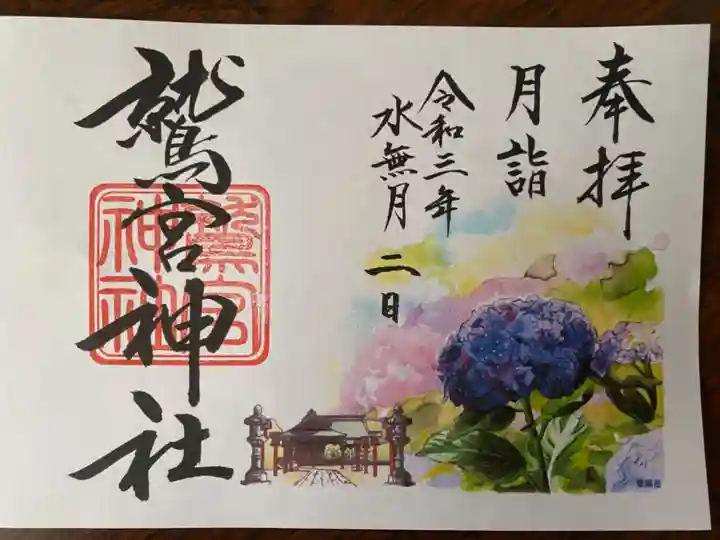 奉拝
月詣
令和三年
水無月 二日
鷲宮神社
鷲宮
神社